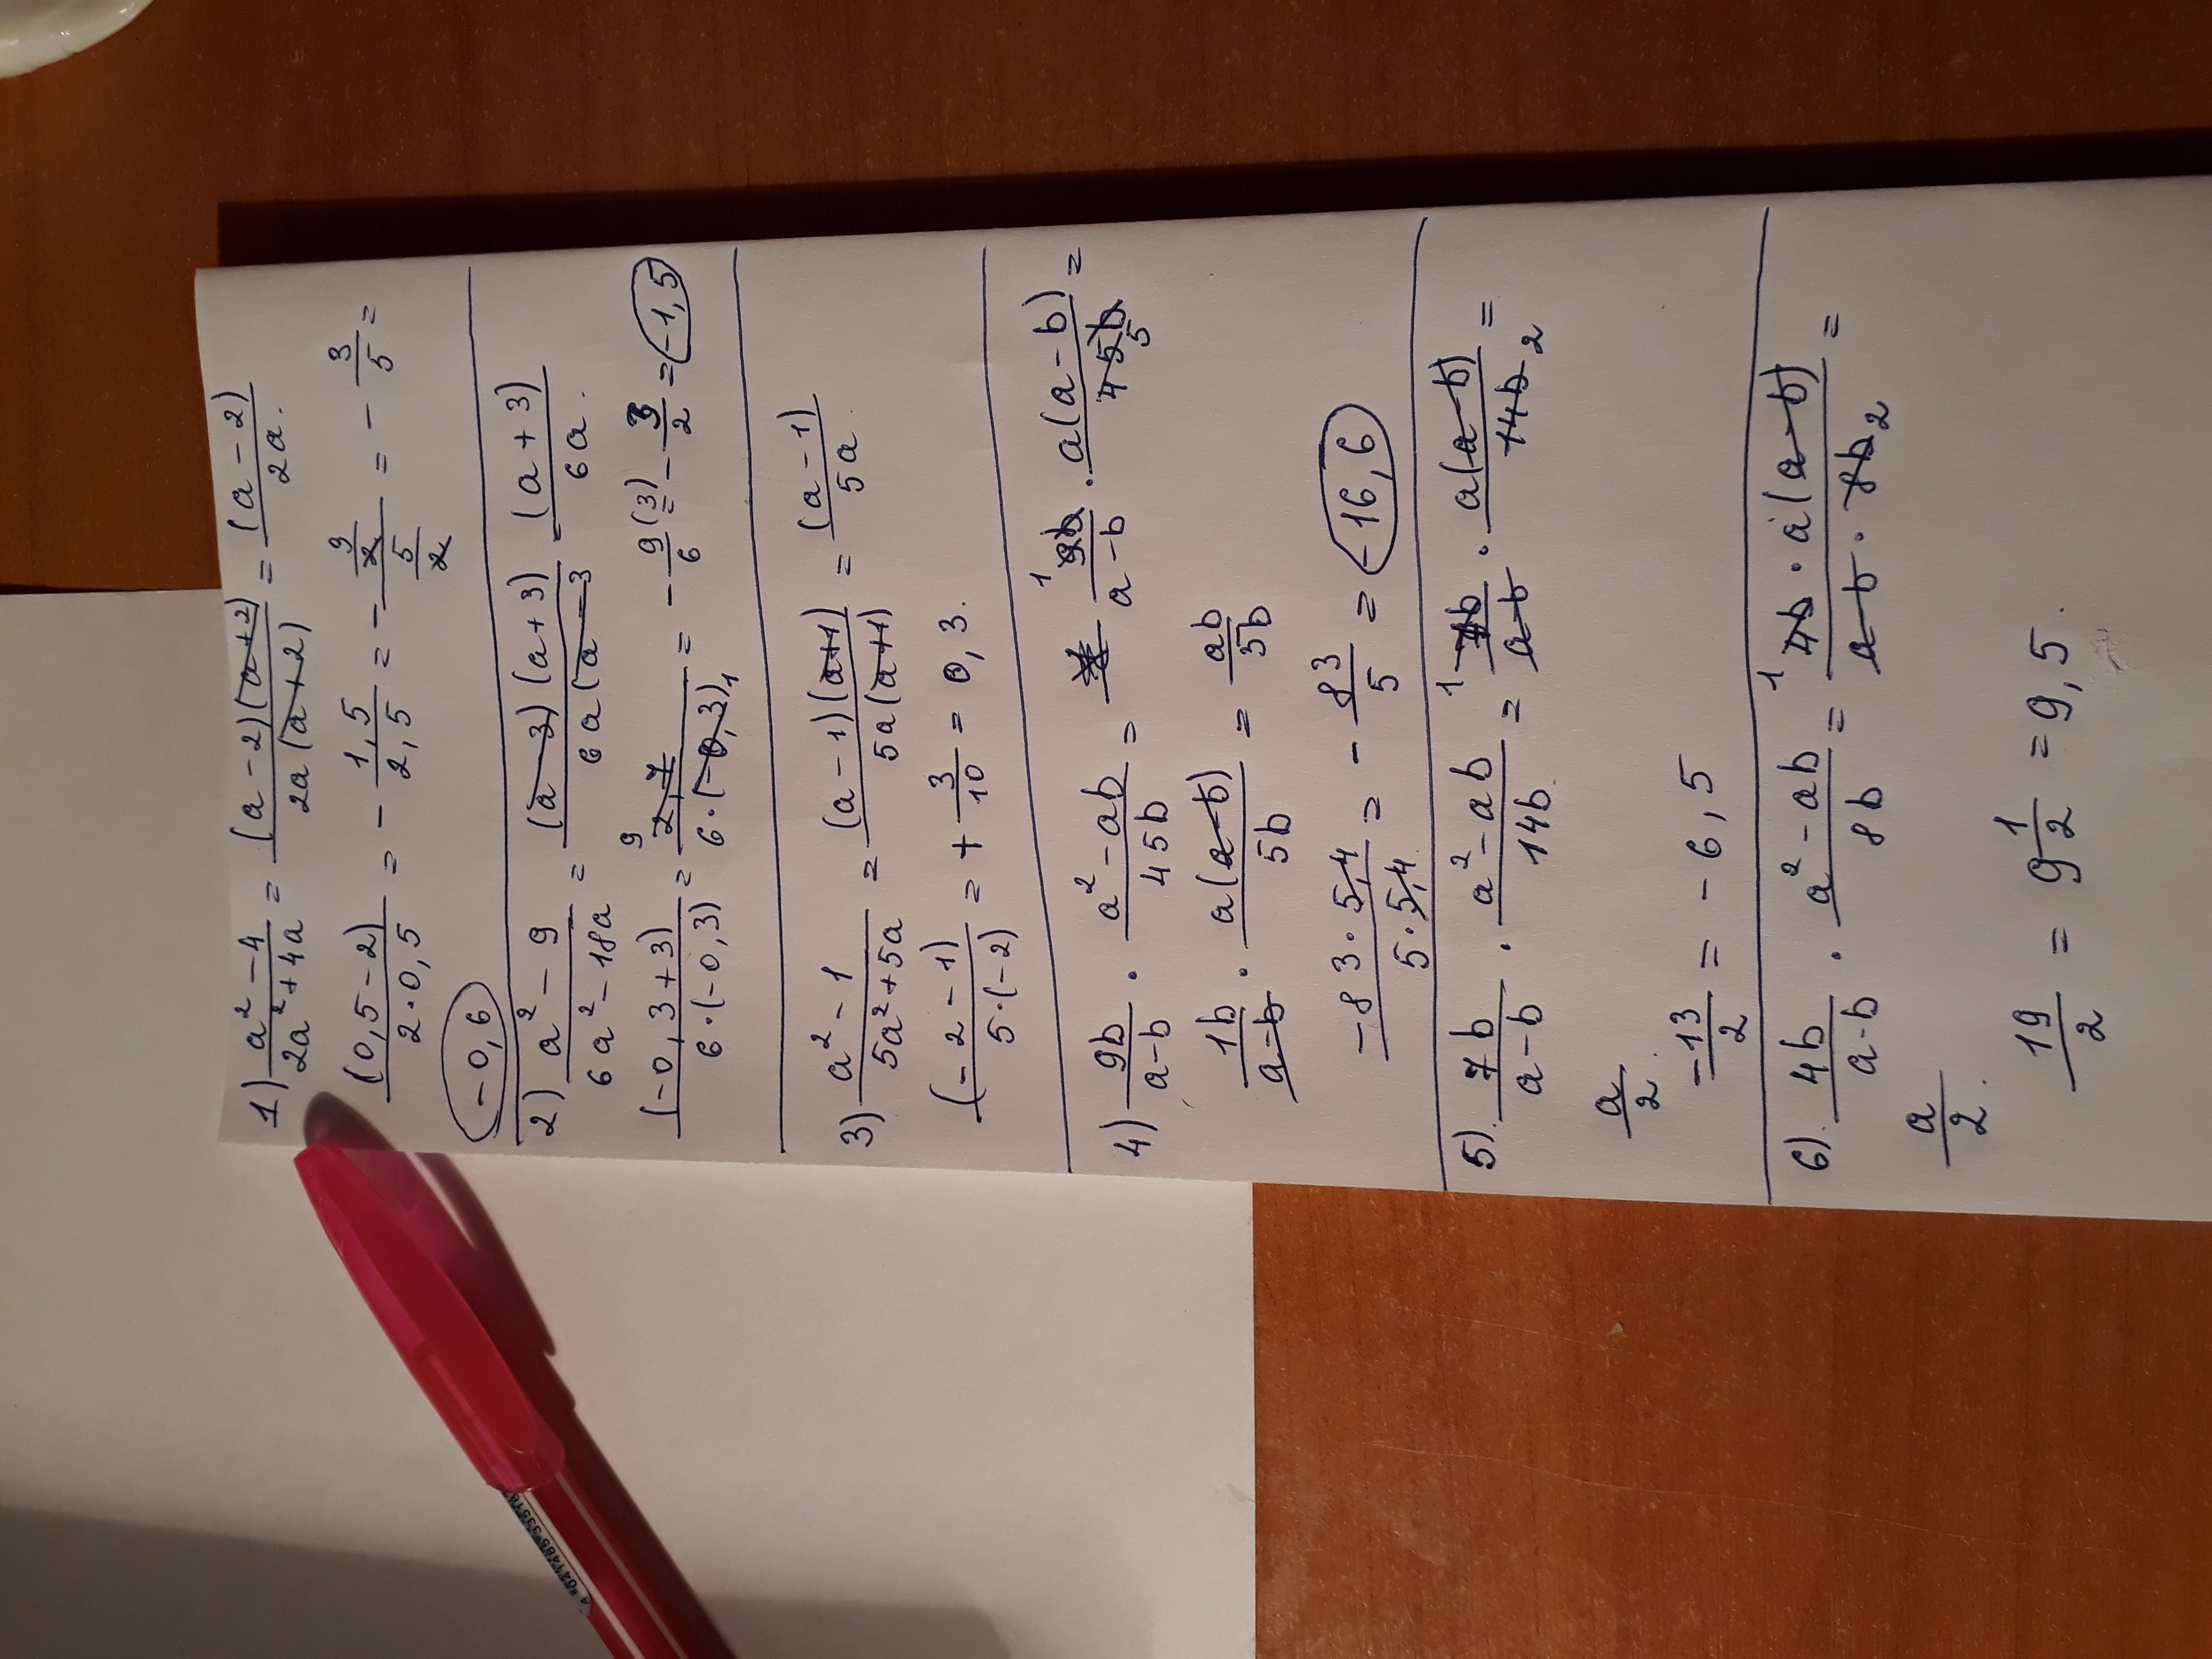 1) (a² - 4)/(2a² + 4a) = ((a - 2)(a + 2))/(2a(a + 2)) = (a - 2)/2a.
(0,5 - 2)/(2·0,5) = - 1,5/2,5 = - (3/2)/(5/2) = - 3/5 =
-0,6
2) (a² - 9)/(6a² - 18a) = ((a - 3)(a + 3))/(6a(a - 3) = (a + 3)/6a.
(-0,3 + 3)/(6·(-0,3)) = 9 2,7/(6·(-0,3)1) = - 9/6 (3) = - 3/2 = -1,5
3) (a² - 1)/(5a² + 5a) = ((a - 1)(a+1))/(5a(a+1)) = (a - 1)/5a.
(-2 - 1)/(5·(-2)) = + 3/10 = 0,3.
4) 9b/(a - b) · (a² - ab)/45b = 1 9b/(a - b) · a(a - b)/45b 5 =
1b/(a - b) · a(a - b)/5b = ab/5b
-83·5,4/5·5,4 = - 83/5 = -16,6
5). 7b/(a - b) · (a² - ab)/14b = 1 7b/(a - b) · a(a - b)/14b 2 =
a/2.
-13/2 = - 6,5
6). 4b/(a - b) · (a² - ab)/8b = 1 4b · a(a - b)/(a - b · 8b 2) =
a/2.
19/2 = 9 1/2 = 9,5.